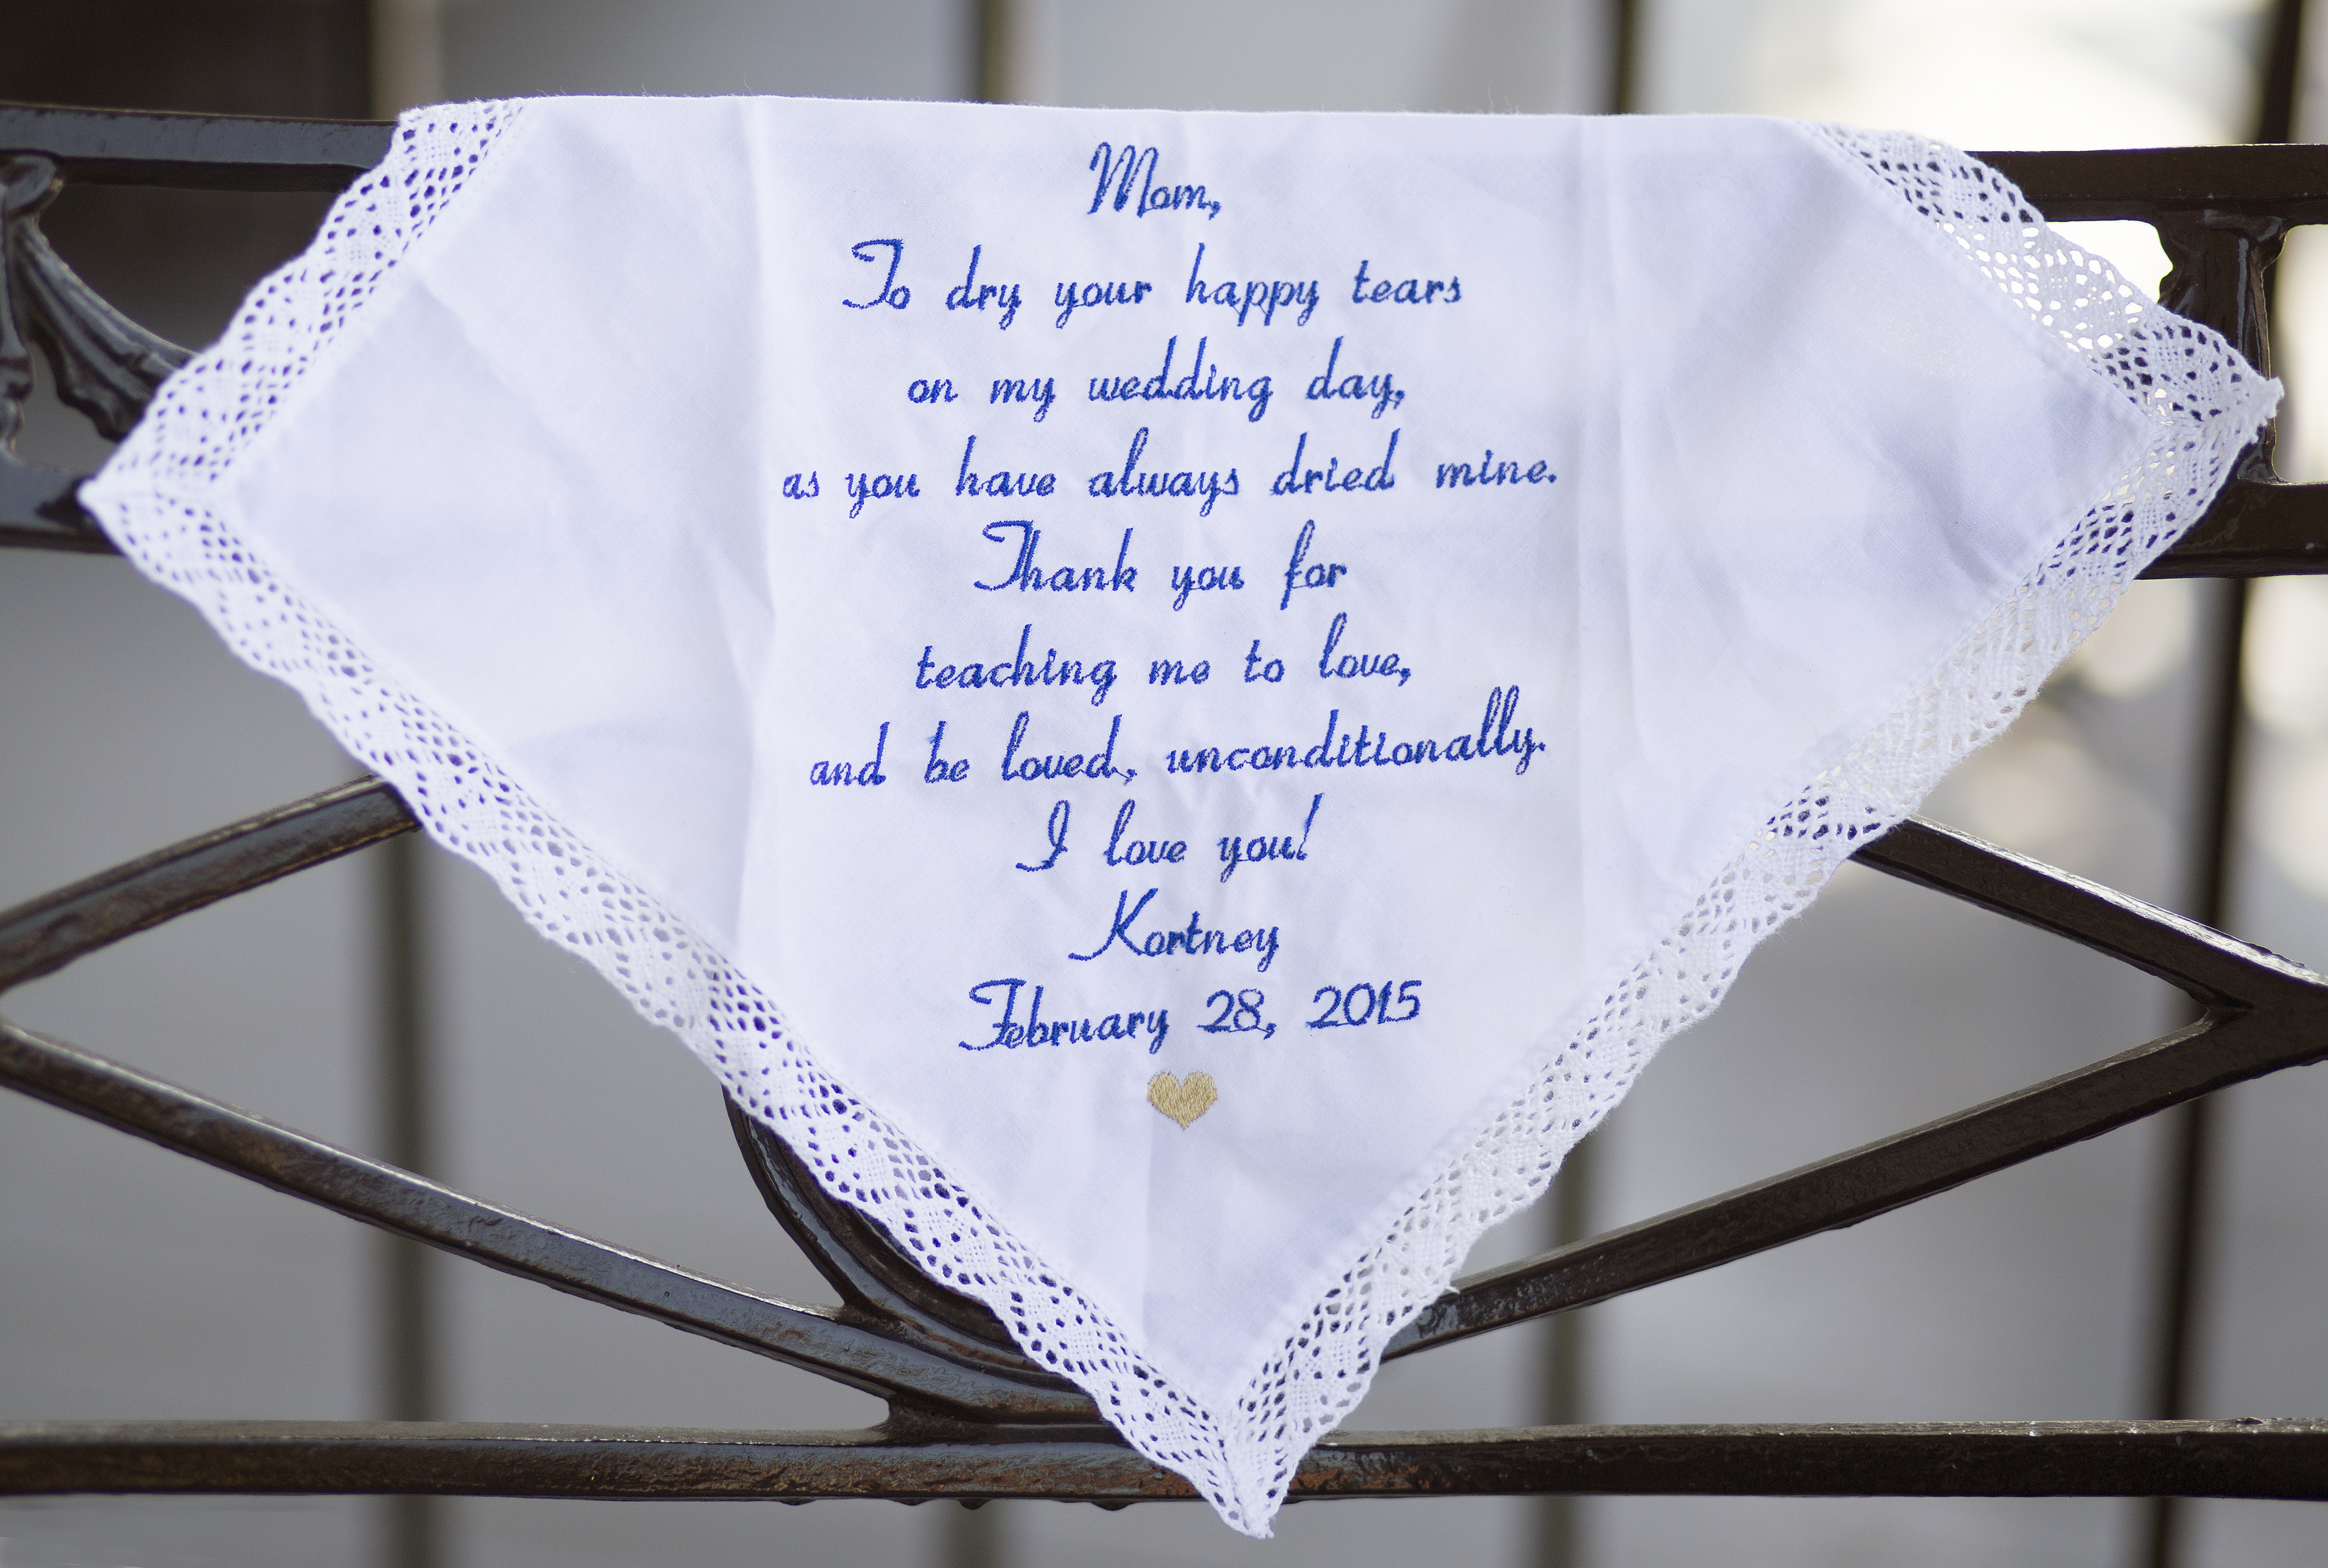 Mom,
To dry your happy tears
on my wedding day,
as you have always dried mine.
Thank you for
teaching me to love,
and be loved, unconditionally.
I love you!
Kortney
February 28, 2015